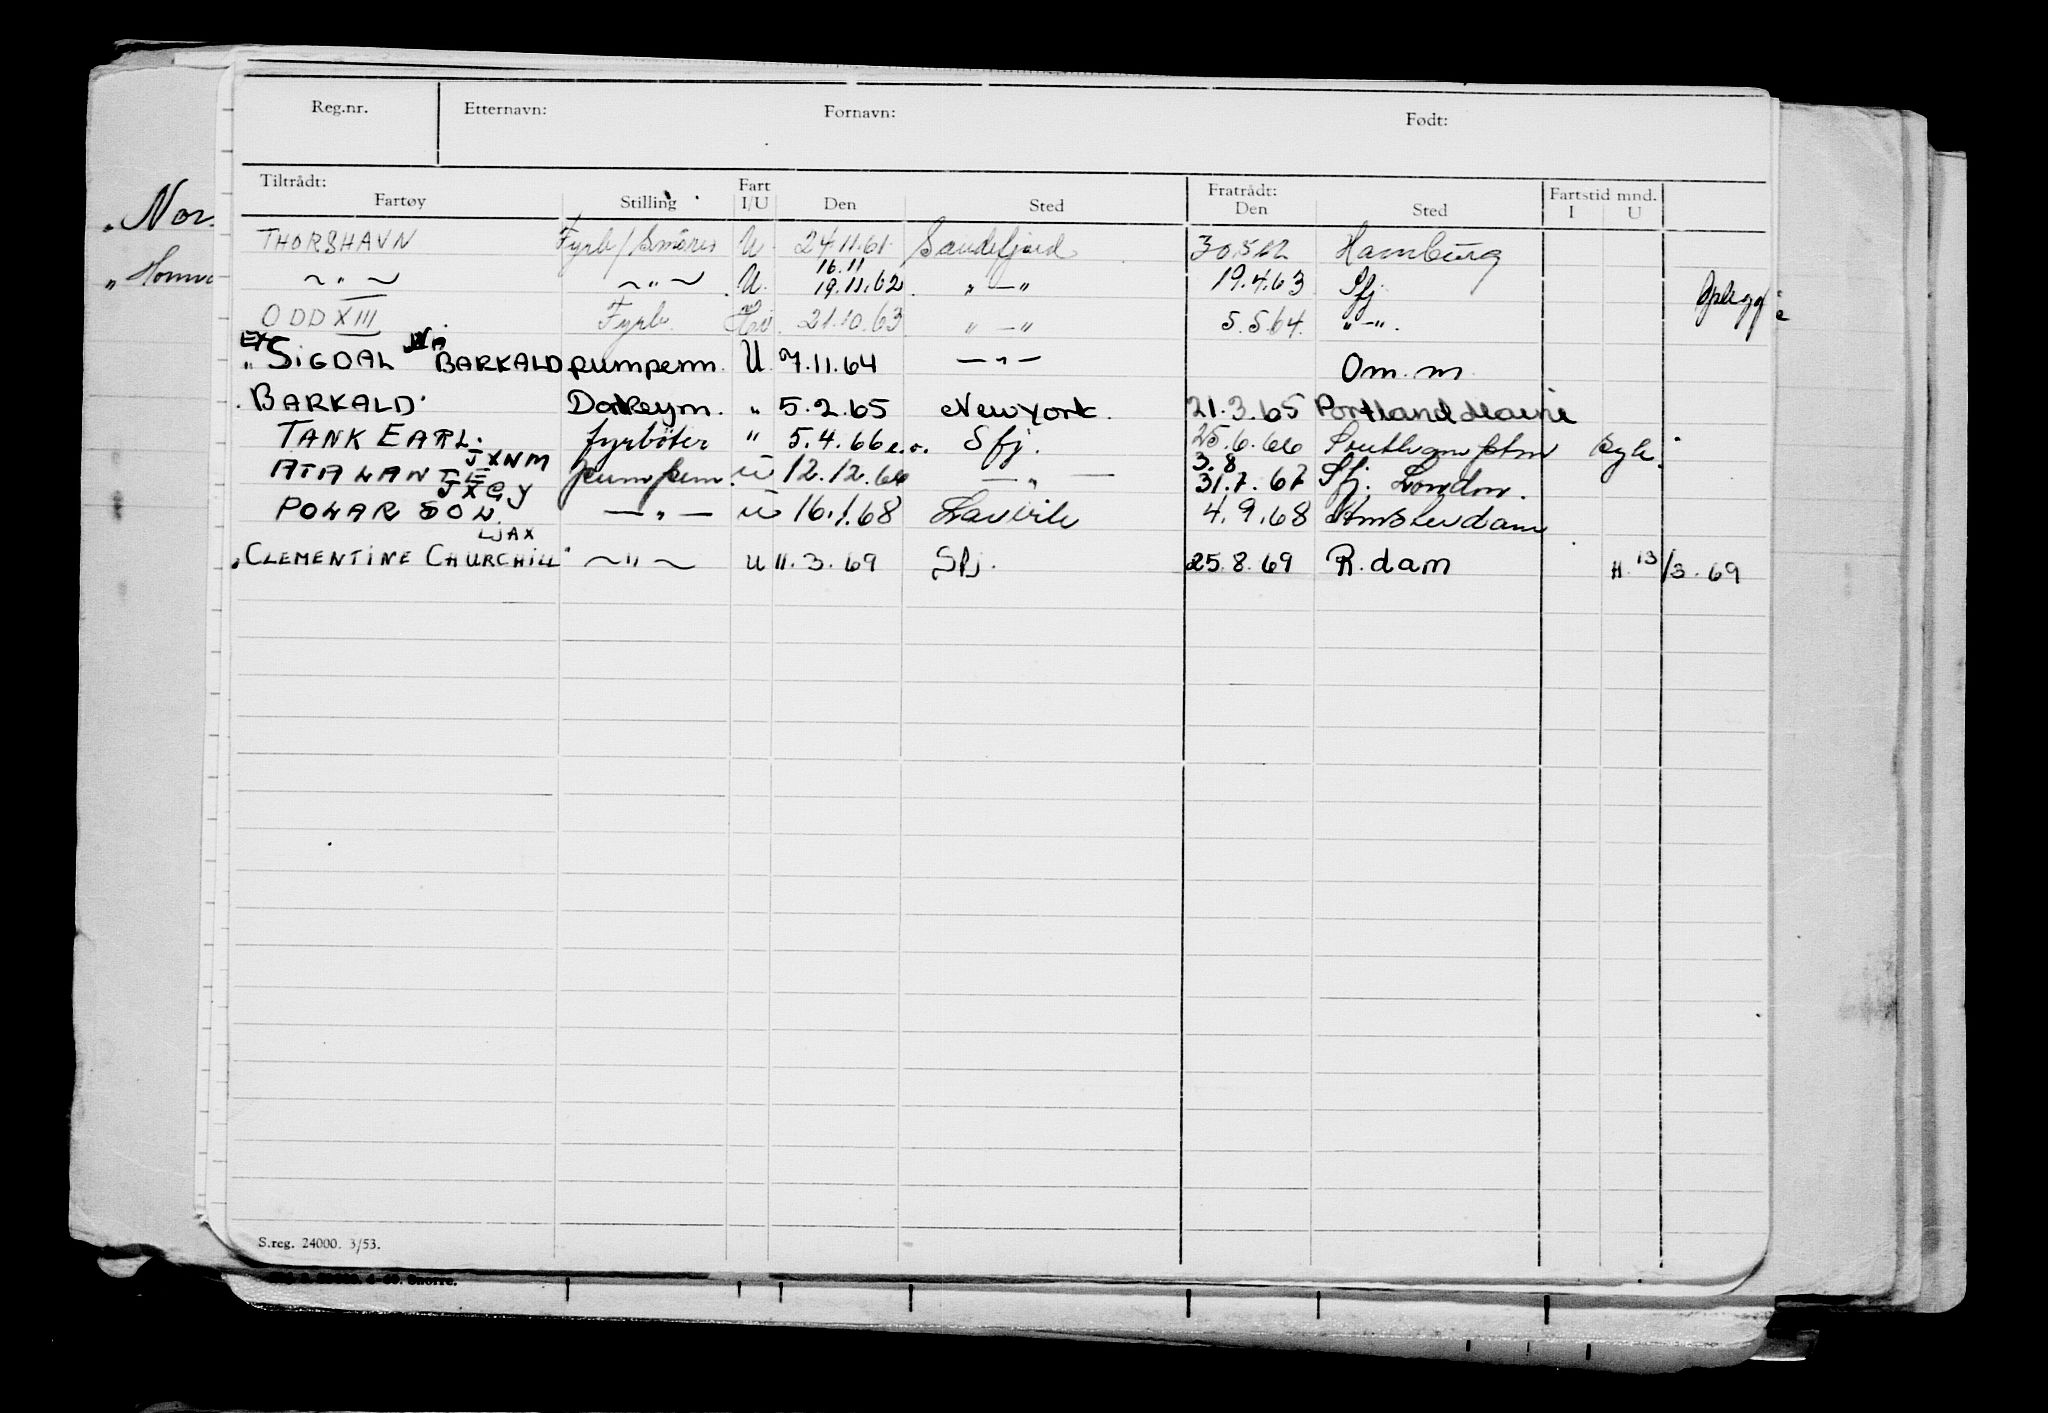 Reg.nr. Etternavn: Fornavn: Født:
Tiltrådt: Fart Fratrådt: Fartstid mnd.
Fartøy Stilling I/U Den Sted Den Sted I U
THORSHAVN Fyrb/Smöres U 24.11.61 Sandefjord 30.5.62 Hamburg
~ " ~ ~ " ~ U. 16.11 19.11.62 " — " 19.4.63 Sfj
ODD XIII Fyrb. Hv. 21.10.63 " — " 5.5.64. " — ".
EX SIGDAL NÅ BARKALD pumpem. U 7.11.64 — " — Om. m.
BARKALD Dokeym. " 5.2.65 New York. 21.3.65 Portland Maine
TANK EARL. JXNM fyrböter " 5.4.66 e.o. Sfj. 25.6.66 Southampton syk.
ATALANTE JXGY pumpem. U 12.12.66 — " — 3.8 31.7.67 Sfj. London.
POLAR SOL. LJAX — " — U 16.1.68 Larvik 4.9.68 Amsterdam
CLEMENTINE CHURCHILL ~ " ~ U 11.3.69 Sfj. 25.8.69 R.dam H. 13/3.69
S.reg. 24000. 3/53.
Nor.